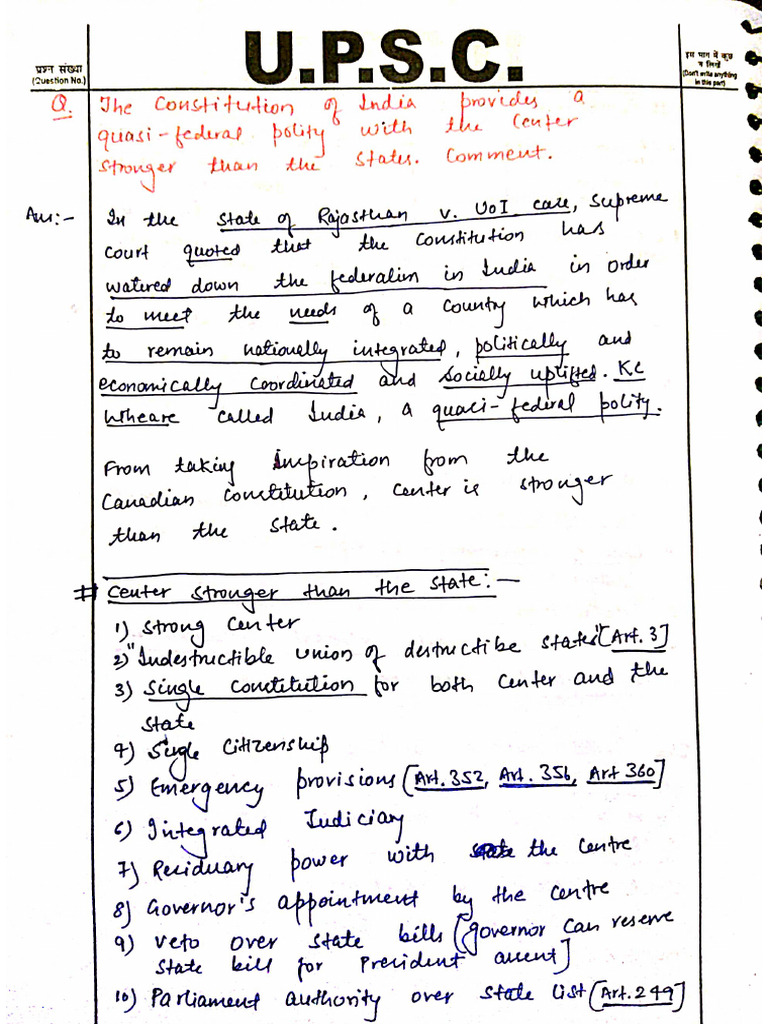 U.P.S.C.
प्रश्न संख्या
(Question No.)
इस भाग में कुछ
न लिखें
(Don't write anything
in this part)
Q. The Constitution of India provides a
quasi-federal polity with the Center
stronger than the states. Comment.
Ans:- In the State of Rajasthan v. UoI case, Supreme
Court quoted that the Constitution has
watered down the federalim in India in order
to meet the needs of a country which has
to remain nationally integrated, politically and
economically coordinated and socially uplifted. KC
Wheare called India, a quasi-federal polity.
From taking inspiration from the
Canadian Constitution, Center is stronger
than the state.
# Center stronger than the state:-
1) Strong Center
2) "Indestructible union of destructibe states" [Art. 3]
3) Single Constitution for both Center and the
state
4) Single Citizenship
5) Emergency provisions [Art. 352, Art. 356, Art 360]
6) Integrated Judiciary
7) Residuary power with the Centre
8) Governor's appointment by the centre
9) Veto over state bills [Governor can reserve
state bill for President assent]
10) Parliament authority over state list [Art. 249]